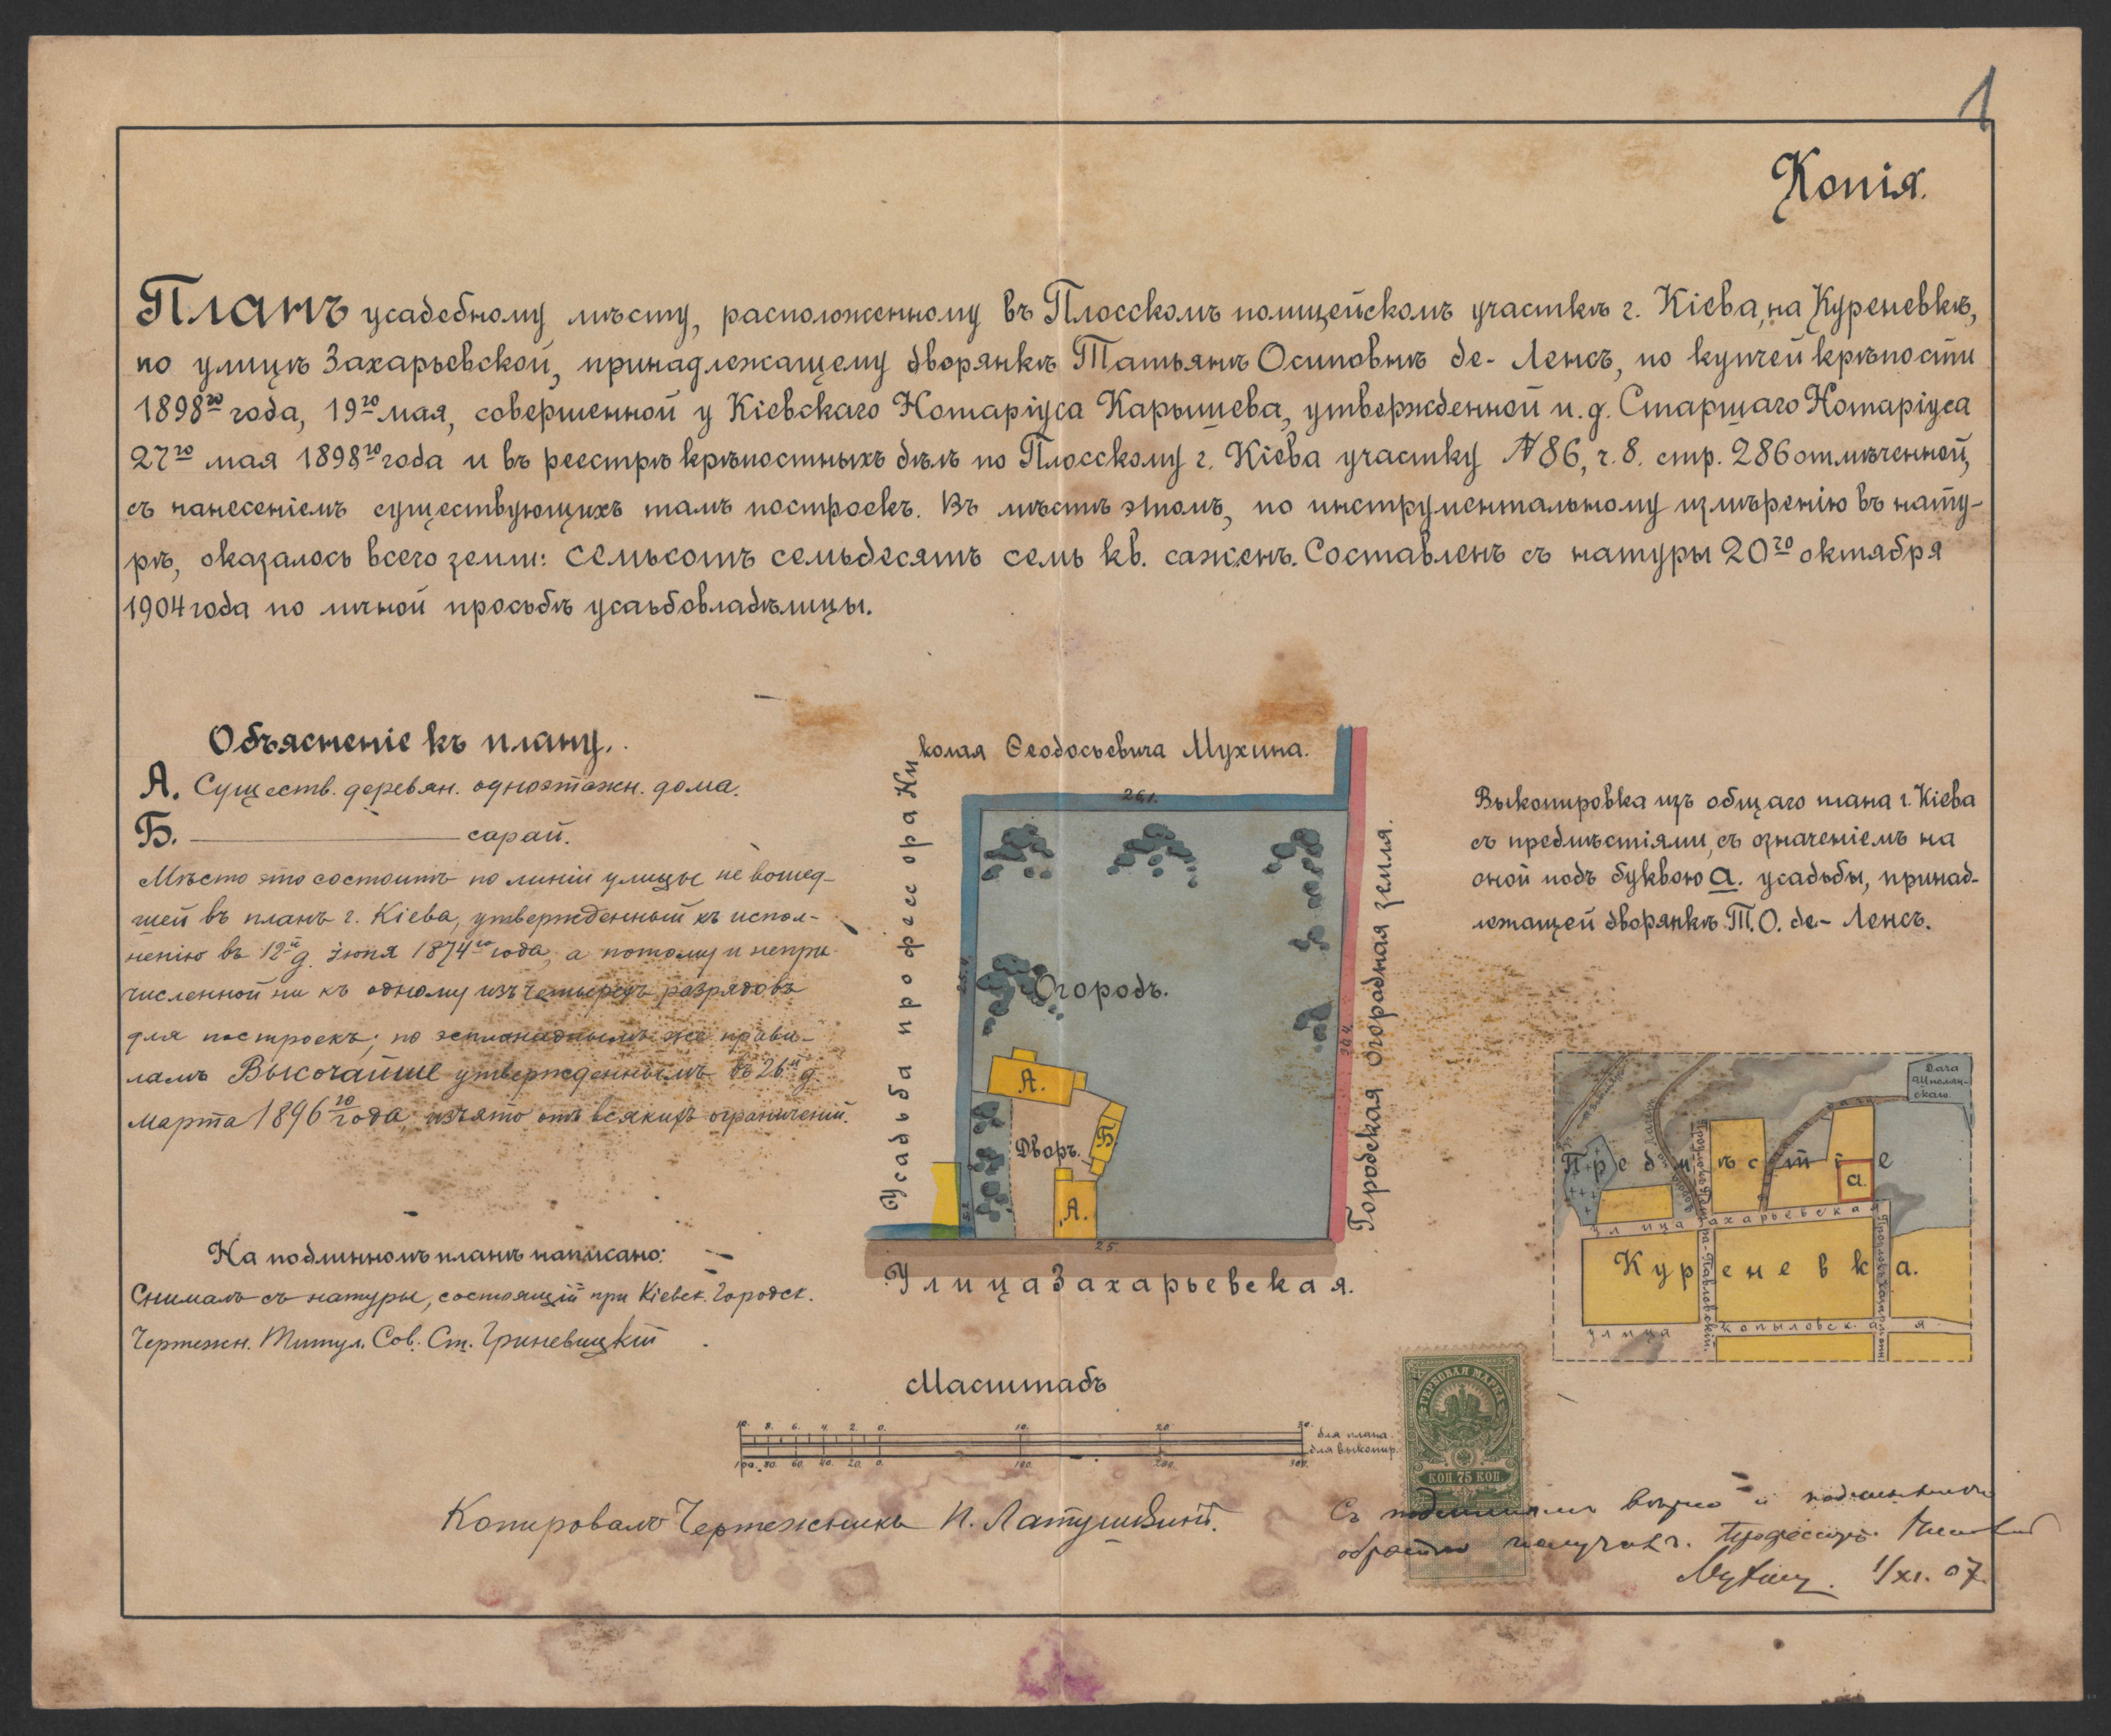 1
Копія.
Планъ усадебному мѣсту, расположенному въ Плосскомъ полицейскомъ участкѣ г. Кіева, на Куреневкѣ,
по улицѣ Захарьевской, принадлежащему дворянкѣ Татьянѣ Осиповнѣ де-Ленсъ, по купчей крѣпости
1898го года, 19го мая, совершенной у Кіевскаго Нотаріуса Карышева, утвержденной и.д. Старшаго Нотаріуса
27го мая 1898го года и въ реестрѣ крѣпостныхъ дѣлъ по Плосскому г. Кіева участку № 86, ч. 8. стр. 286 отмѣченной,
съ нанесеніемъ существующихъ тамъ построекъ. Въ мѣстѣ этомъ, по инструментальному измѣренію въ нату-
рѣ, оказалось всего земли: семьсотъ семьдесятъ семь кв. саженъ. Составленъ съ натуры 20го октября
1904 года по личной просьбѣ усадьбовладѣлицы.
Объясненіе къ плану.
А. Существ. деревян. одноэтажн. дома.
Б. ——— сарай.
Мѣсто это состоитъ по линіи улицы не вошед-
шей въ планъ г. Кіева, утвержденный къ испол-
ненію въ 12й д. Іюня 1874го года, а потому и непри-
численной ни къ одному изъ четырехъ разрядовъ
для построекъ; по эспланаднымъ же прави-
ламъ Высочайше утвержденнымъ въ 26й д.
марта 1896го года, изъято отъ всякихъ ограниченій.
На подлинномъ планѣ написано:
Снималъ съ натуры, состоящій при Кіевск. Городск.
Чертежн. Титул. Сов. Ст. Гриневицкій
Усадьба професора Ни
колая Ѳеодосьевича Мухина.
26,1.
Огородъ.
А.
Дворъ.
Б.
А.
25.
30,4.
5,2.
Городская огородная земля.
Улица Захарьевская.
Выкопировка изъ общаго плана г. Кіева
съ предмѣстіями, съ означеніемъ на
оной подъ буквою а. усадьбы, принад-
лежащей дворянкѣ Т.О. де-Ленсъ.
Дача
Шполян-
скаго
Предмѣстіе
а.
улица Захарьевская
Куреневка.
улица Копыловск.ая
Масштабъ
10. 8. 6. 4. 2. 0. 10. 20. 30. для плана.
100. 80. 60. 40. 20. 0. 100. 200. 300. для выкопир.
ГЕРБОВАЯ МАРКА
КОП. 75 КОП.
Копировалъ Чертежникъ П. Латушкинъ.
Съ подлиннымъ вѣрно и подлинный
обратно получилъ. Профессоръ
Мухинъ. 1/XI. 07.